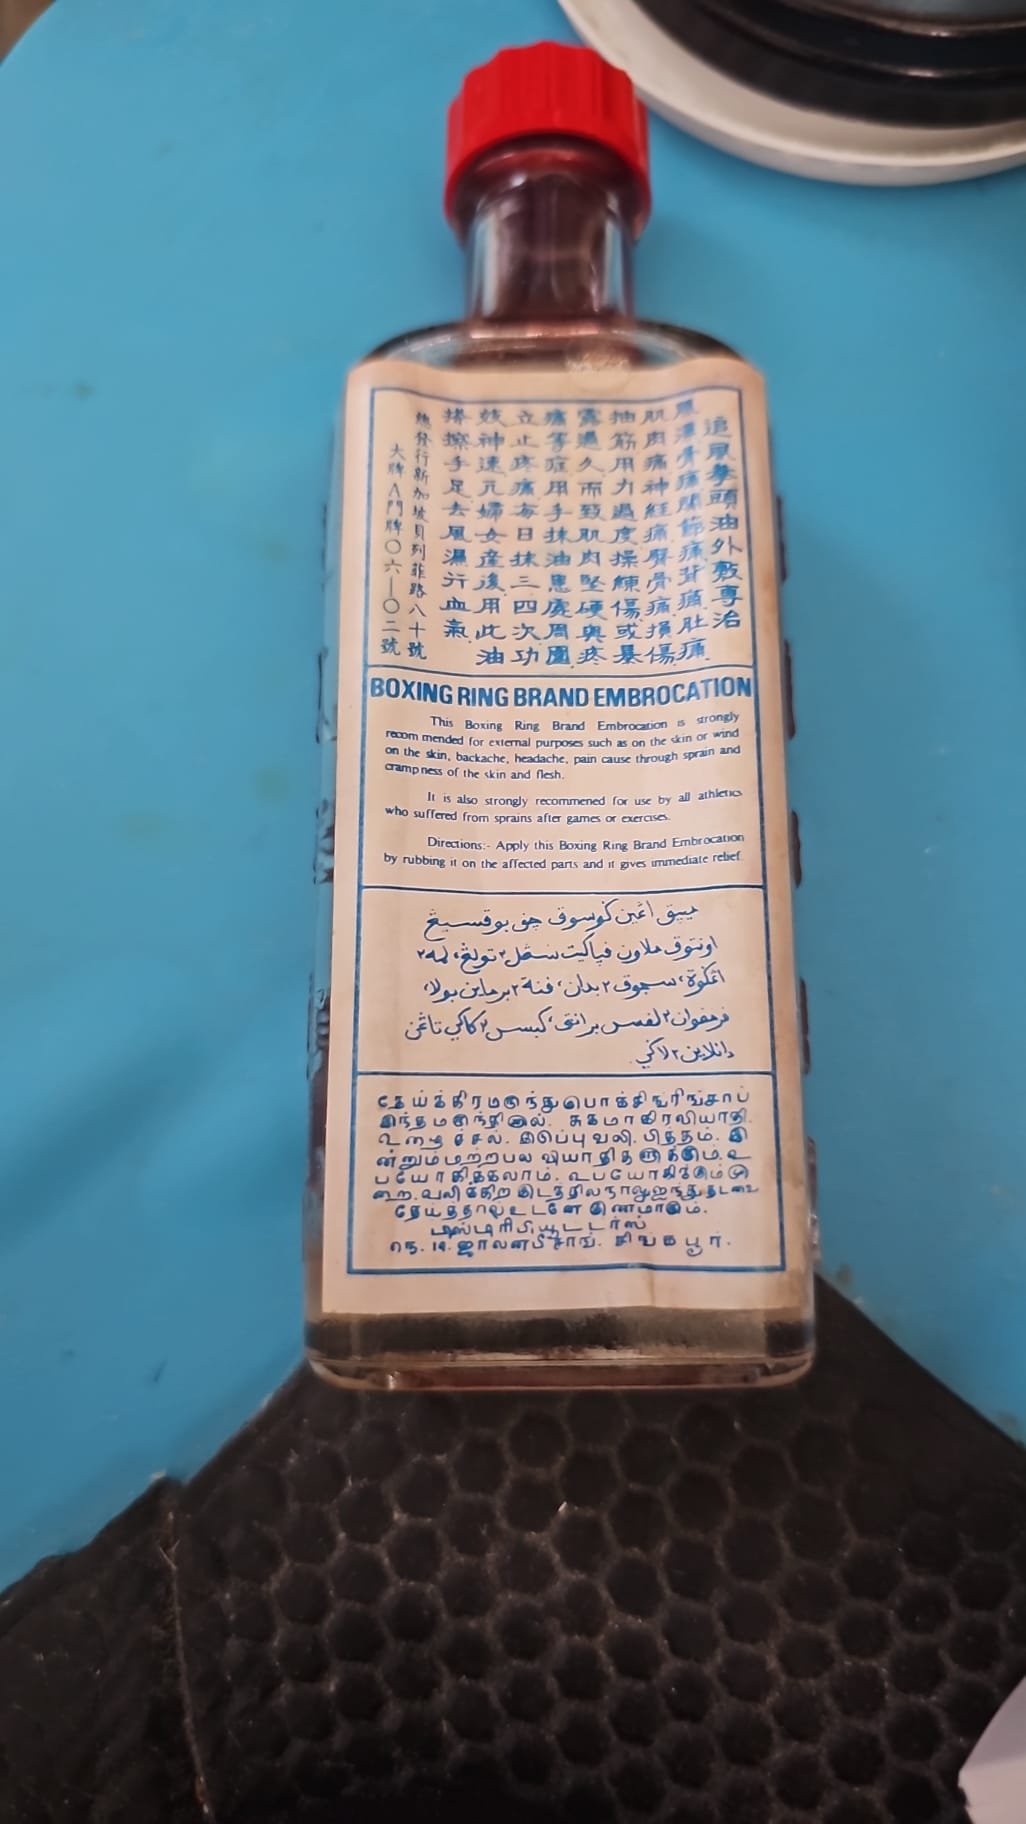 追風拳頭油外敷專治
風濕骨痛關節痛背痛肚痛
肌肉痛神經痛臀骨痛損傷
抽筋用力過度操練傷或暴
露過久而致肌肉堅硬與疼
痛等症用手抹油患處周圍
立止疼痛每日抹三四次功
效神速凡婦女產後用此油
搭擦手足去風濕行血氣
總發行新加坡貝列菲路八十號
大牌A門牌〇六—〇二號
BOXING RING BRAND EMBROCATION
This Boxing Ring Brand Embrocation is strongly
recom mended for external purposes such as on the skin or wind
on the skin, backache, headache, pain cause through sprain and
cramp ness of the skin and flesh.
It is also strongly recommened for use by all athletics
who suffered from sprains after games or exercises.
Directions:- Apply this Boxing Ring Brand Embrocation
by rubbing it on the affected parts and it gives immediate relief.
مييق اڠين كوسوق چڤ بوقسيڠ
اونتوق ملاون ڤپاكيت سڠل٢ تولڠ، لمه٢
اڠݢوة، سجوق٢ بدان، ڤنة٢ برماءين بولا،
دان لاءين٢ لاݢي.
தேய்க்கிற மருந்து பொக்சிங் ரிங் சாப்
இந்த மருந்தினால். சுகமாகிரவியாதி.
உழைச்சல். இடுப்பு வலி. பித்தம். இ
ன்றும் மற்றபல வியாதிகளுக்கும். உ
பயோகிக்கலாம். உபயோகிக்கும் மு
றை. வலிக்கிற இடத்தில் நாலு ஐந்து தடவை
தேய்த்தால் உடனே குணமாகும்.
நெ. 14. ஜாலான் பீசாங். சிங்கபூர்.